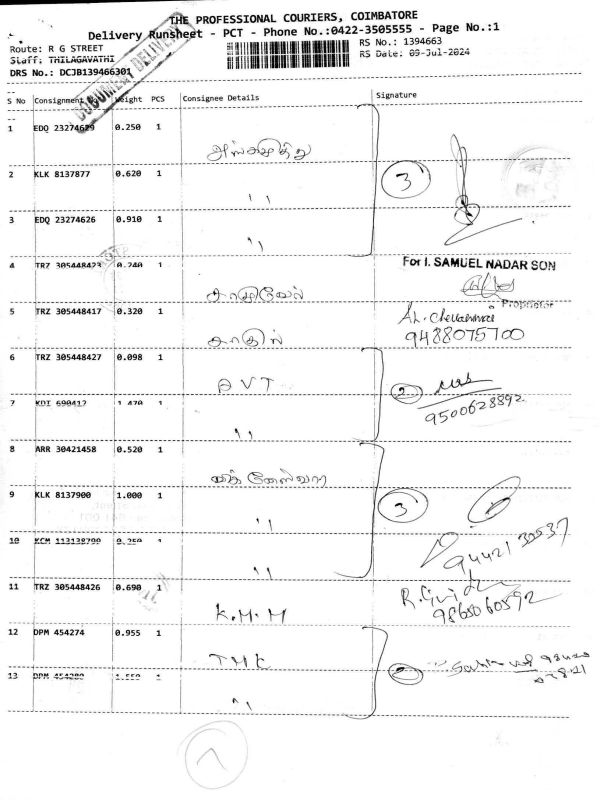 THE PROFESSIONAL COURIERS, COIMBATORE
Delivery Runsheet - PCT - Phone No.:0422-3505555 - Page No.:1
Route: R G STREET
RS No.: 1394663
Staff: THILAGAVATHI
RS Date: 09-Jul-2024
DRS No.: DCJB139466301
DOCUMENT DELIVERY
S No Consignment No Weight PCS Consignee Details Signature
1 EDQ 23274629 0.250 1
2 KLK 8137877 0.620 1 ,, 3
3 EDQ 23274626 0.910 1 ,,
4 TRZ 305448423 0.240 1
For I. SAMUEL NADAR SON
Proprietor
5 TRZ 305448417 0.320 1
9488075700
6 TRZ 305448427 0.098 1 AVT 2
7 KDI 690412 1.470 1 ,,
9500628892
8 ARR 30421458 0.520 1
9 KLK 8137900 1.000 1 ,, 3
10 KCM 113138790 0.250 1 ,,
94421 30537
11 TRZ 305448426 0.690 1 K.M.M
9865060592
12 DPM 454274 0.955 1 TMK
13 DPM 454280 1.550 1 ,, 2